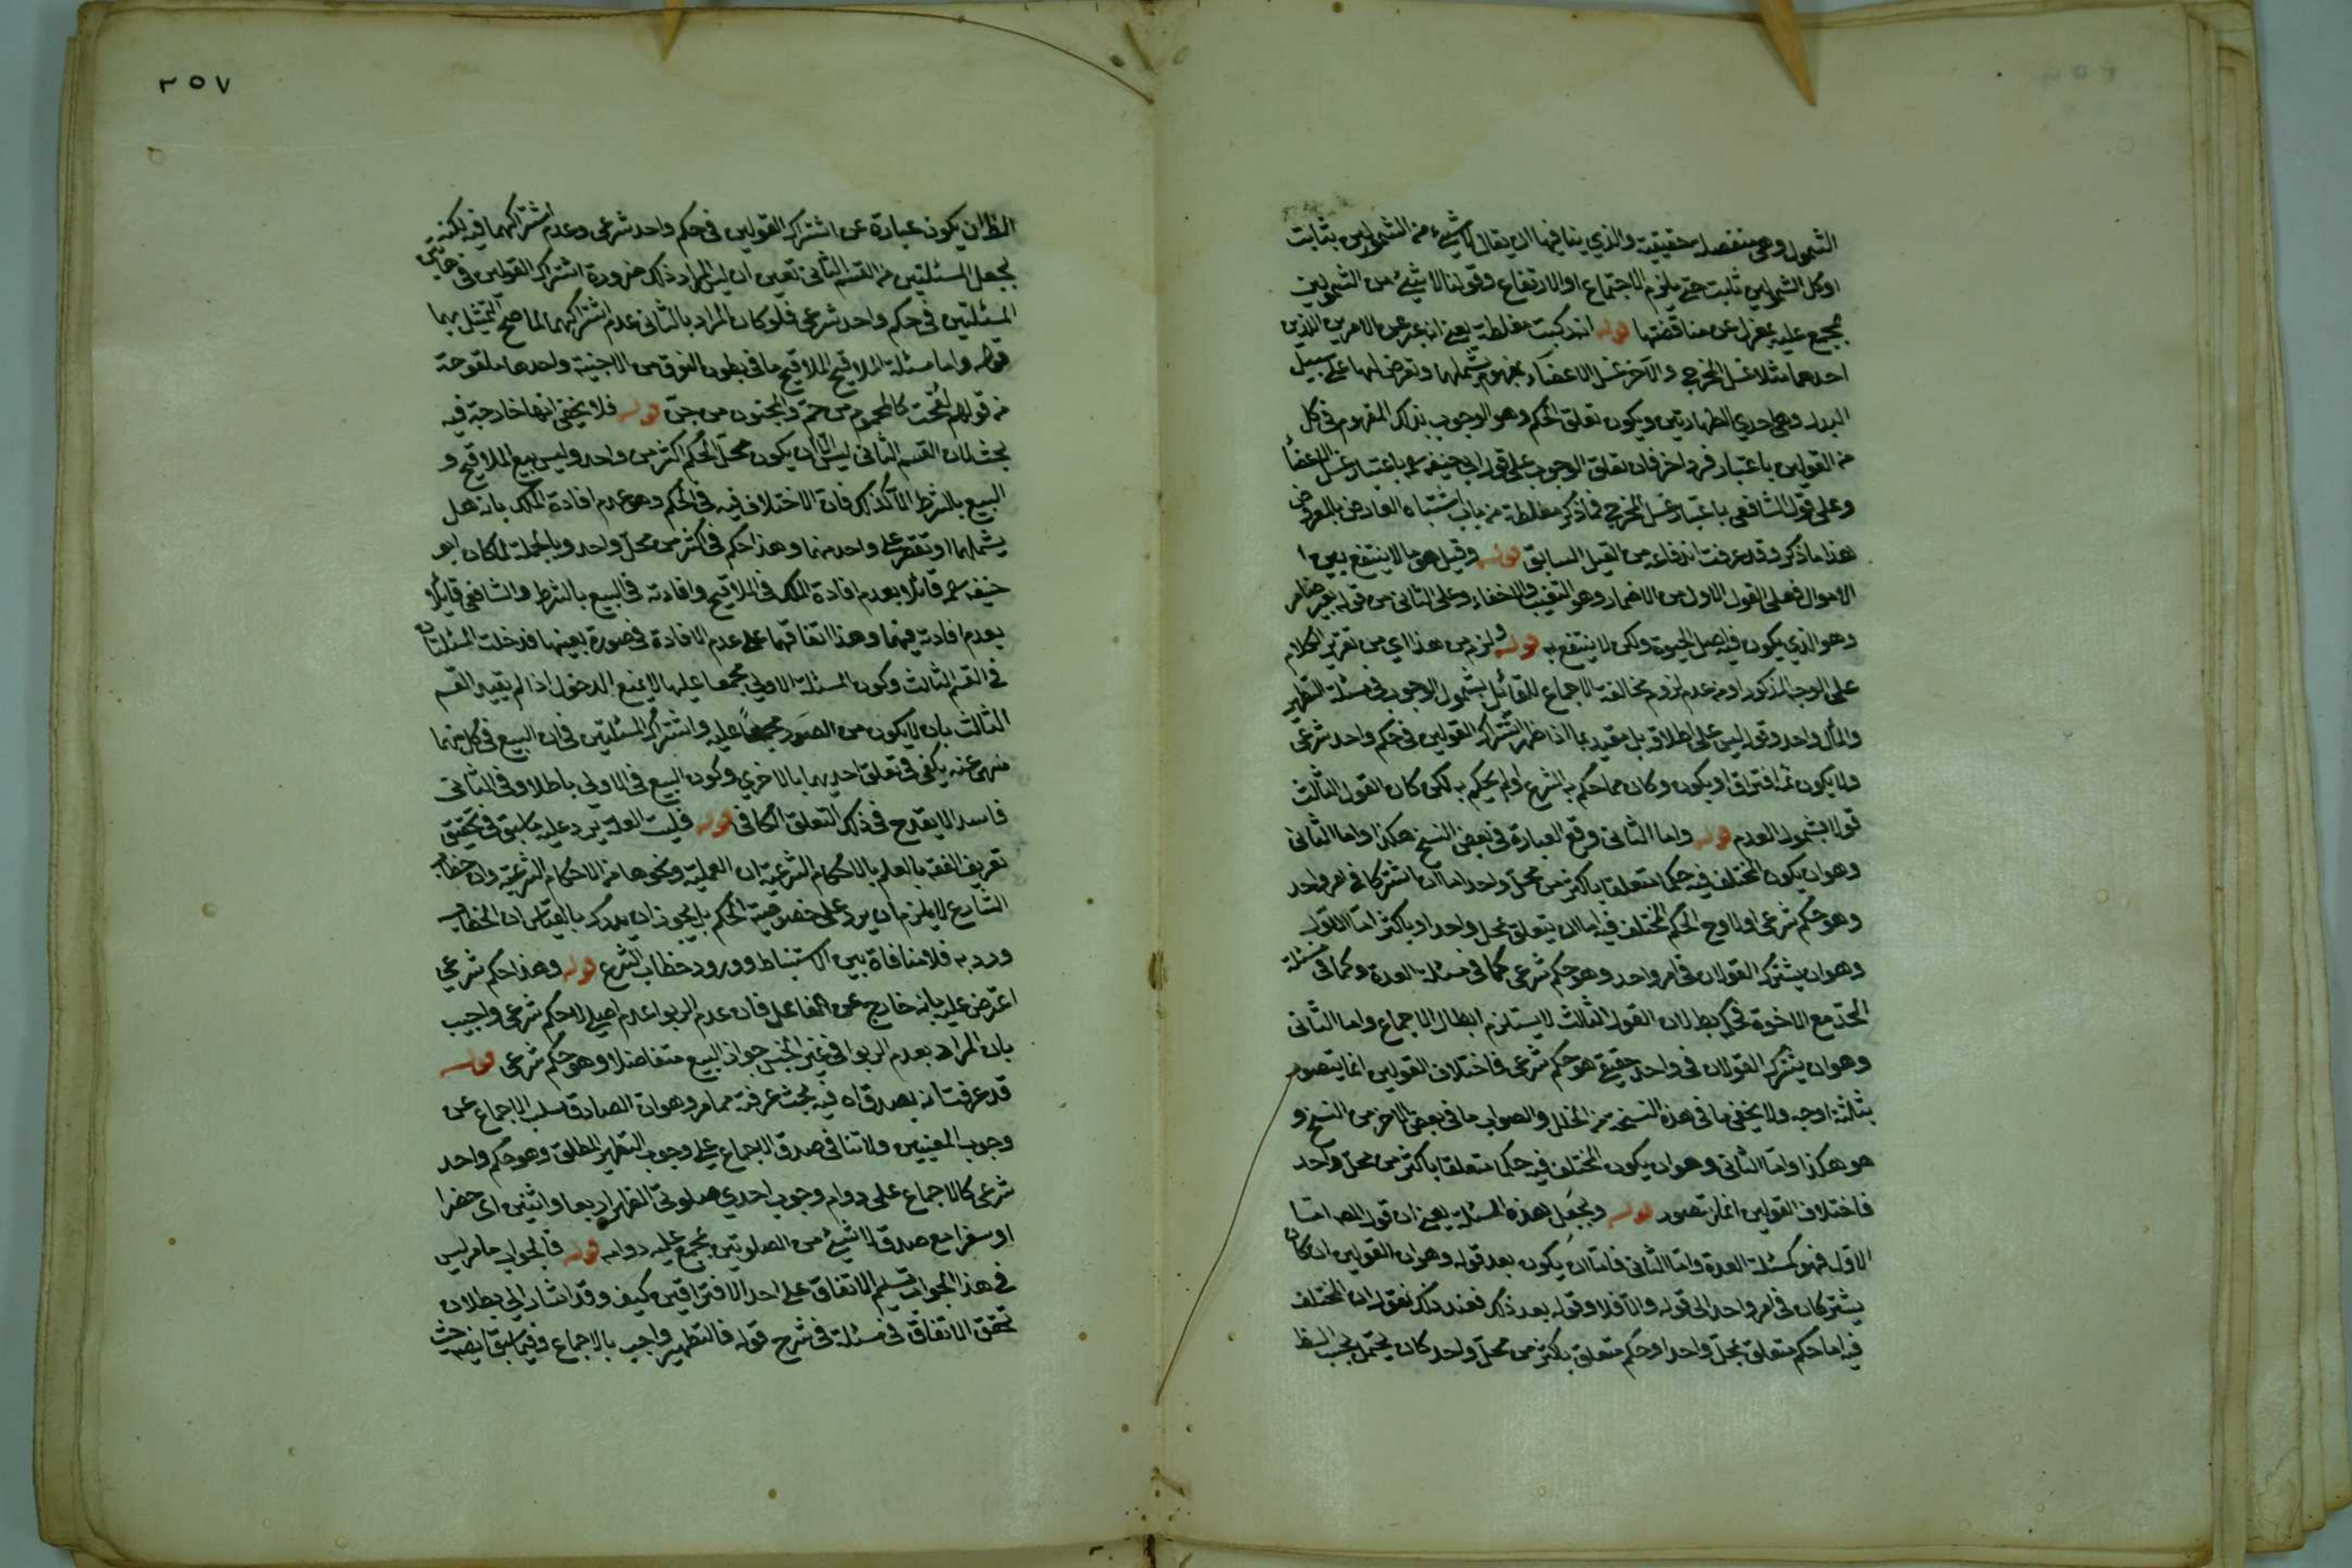 الشمول وهي منفصلة حقيقية والذي ينافيها ان يقال لا شيء من الشمولين بثابت
او كل الشمولين ثابت حتى يلزم الاجتماع او الارتفاع وقولنا لا شيء من الشمولين
بمجمع عليه بمعزل عن مناقضتها قوله انه ركبت مغلطة يعني انه عبر عن الامرين اللذين
احدهما مثلا غسل المخرج والآخر غسل الاعضاء بمفهوم يشملهما وتعرض لهما على سبيل
البدل وهي احدي الطهارتين ويكون تعلق الحكم وهو الوجوب بذلك المفهوم في كل
من القولين باعتبار فرد اخر فان تعلق الوجوب على قول ابي حنيفة باعتبار غسل الاعضاء
وعلى قول الشافعي باعتبار غسل المخرج فما ذكر مغلطة من باب اشتباه العارض بالمعروض
هذا ما ذكر وقد عرفت اندفاعه من القيل السابق قوله وقيل هي ما لا ينتفع به من
الاموال فعلى القول الاول من الاضمار وهو التغيب والاخفاء وعلى الثاني من قوله بعير ضامر
وهو الذي يكون فيه اصل الحيوة ولكن لا ينتفع به قوله ولزم من هذا اي من تقرير الكلام
على الوجه المذكور او من عدم لزوم مخالفة الاجماع للقائل بشمول الوجوب في مسئلة التطهير
والمأل واحد وقوله ليس على اطلاقه بل مقيد بما اذا ظهر اشتراك القولين في حكم واحد شرعي
ولا يكون ثمة افتراق او يكون وكان مما حكم به الشرع او لم يحكم به لكن كان القول الثالث
قولا بشمول العدم قوله واما الثاني وقع العبارة في بعض النسخ هكذا واما الثاني
وهو ان يكون المختلف فيه حكما متعلقا باكثر من محل واحد اما ان اشتركا في امر واحد
وهو حكم شرعي او لا وح الحكم المختلف فيه اما ان يتعلق بمحل واحد او باكثر اما الاول
وهو ان يشترك القولان في امر واحد وهو حكم شرعي كما في مسئلة العدة وكما في مسئلة
الجد مع الاخوة فحكم بطلان القول الثالث لا يستلزم ابطال الاجماع واما الثاني
وهو ان يشترك القولان في واحد حقيقي هو حكم شرعي فاختلاف القولين انما يتصور
بثلثة اوجه ولا يخفي ما في هذه النسخة من الخلل والصواب ما في بعض الاخر من النسخ و
هو هكذا واما الثاني وهو ان يكون المختلف فيه حكما متعلقا باكثر من محل واحد
فاختلاف القولين انما يتصور قوله ويجعل هذه المسئلة يعني ان قول المص اما
الاول فهو كمسئلة العدة واما الثاني فاما ان يكون بعد قوله وهو ان القولين ان كان
يشتركان في امر واحد الى قوله والا فلا وقوله بعد ذكر فعند ذلك نقول ان المختلف
فيه اما حكم متعلق بمحل واحد او حكم متعلق باكثر من محل واحد كان يحتمل بحسب الظ
٣٥٧
الظ ان يكون عبارة عن اشتراك القولين في حكم واحد شرعي وعدم اشتراكهما فيه لكنه
بجعل المسئلتين من القسم الثاني تعين ان ليس المراد ذلك ضرورة اشتراك القولين في هاتين
المسئلتين في حكم واحد شرعي فلو كان المراد بالثاني عدم اشتراكهما لما صح التمثيل بهما
قوله واما مسئلة الملاقيح الملاقيح ما في بطون النوق من الاجنة واحدها ملقوحة
من قولهم لقحت كالمحموم من حم والمجنون من جن قوله فلا يخفى انها خارجة فيه
بحث لان القسم الثاني ليس الا ان يكون محل الحكم اكثر من واحد وليس بيع الملاقيح و
البيع بالشرط الا كذلك فان الاختلاف فيه في الحكم وهو عدم افادة الملك بانه هل
يشملهما او تقتصر على واحد منهما وهذا حكم في اكثر من محل واحد وبالجملة لما كان ابو
حنيفة قائلا بعدم افادة الملك في الملاقيح وافادته في البيع بالشرط والشافعي قائلا
بعدم افادته فيهما وهذا اتفاقهما على عدم الافادة في صورة بعينها فدخلت المسئلتان
في القسم الثالث وكون المسئلة الاولي مجمعا عليها لا يمنع الدخول اذا لم يقيد القسم
الثالث بان لا يكون من الصور مجمعا عليه واشتراك المسئلتين في ان البيع في كل منهما
منهي عنه يكفي في تعلق احديهما بالاخري وكون البيع في الاولي باطلا وفي الثاني
فاسدا لا يقدح في ذلك التعلق الكافي قوله فليست العلة يرد عليه ما سبق في تحقيق
تعريف الفقه بالعلم بالاحكام الشرعية ان العملية ونحوها من الاحكام الشرعية وان خطاب
الشارع لا يلزم ان يرد على خصوصية الحكم بل يجوز ان يدرك بالقياس ان الخطاب
ورد به فلا منافاة بين الاستنباط وورود خطاب الشرع قوله وهذا حكم شرعي
اعترض عليه بانه خارج عن المفاعل فان عدم الربوا عدم اصلي لا حكم شرعي واجيب
بان المراد بعدم الربوا في غير الجنس جواز البيع متفاضلا وهو حكم شرعي قوله
قد عرفت انه يصدق اه فيه بحث عرفته مما مر وهو ان الصادق سلب الاجماع عن
وجوب المعينين ولا تنافي صدق الاجماع على وجوب التطهير المطلق وهو حكم واحد
شرعي كالاجماع على دوام وجوب احدي صلوتي الظهر اربعا واثنين اي حضرا
او سفرا مع صدق لا شيء من الصلوتين بمجمع عليه دوامه قوله فالجواب ما مر ليس
في هذا الجواب تسليم الاتفاق على احد الافتراقين كيف وقد اشار الى بطلان
تحقق الاتفاق في مسئلة في شرح قوله فالتطهير واجب بالاجماع وفيما سبق ايضا حيث